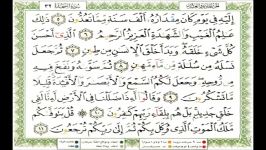 إِلَيْهِ فِي يَوْمٍ كَانَ مِقْدَارُهُ أَلْفَ سَنَةٍ مِّمَّا تَعُدُّونَ ٥ ذَٰلِكَ
عَٰلِمُ ٱلْغَيْبِ وَٱلشَّهَٰدَةِ ٱلْعَزِيزُ ٱلرَّحِيمُ ٦ ٱلَّذِي أَحْسَنَ
كُلَّ شَيْءٍ خَلَقَهُ وَبَدَأَ خَلْقَ ٱلْإِنسَٰنِ مِن طِينٍ ٧ ثُمَّ جَعَلَ
نَسْلَهُ مِن سُلَٰلَةٍ مِّن مَّآءٍ مَّهِينٍ ٨ ثُمَّ سَوَّىٰهُ وَنَفَخَ فِيهِ مِن
رُّوحِهِ وَجَعَلَ لَكُمُ ٱلسَّمْعَ وَٱلْأَبْصَٰرَ وَٱلْأَفْـِٔدَةَ قَلِيلًا
مَّا تَشْكُرُونَ ٩ وَقَالُوٓا۟ أَءِذَا ضَلَلْنَا فِي ٱلْأَرْضِ أَءِنَّا لَفِي
خَلْقٍ جَدِيدٍ بَلْ هُم بِلِقَآءِ رَبِّهِمْ كَٰفِرُونَ ١٠ قُلْ يَتَوَفَّىٰكُم
مَّلَكُ ٱلْمَوْتِ ٱلَّذِي وُكِّلَ بِكُمْ ثُمَّ إِلَىٰ رَبِّكُمْ تُرْجَعُونَ ١١